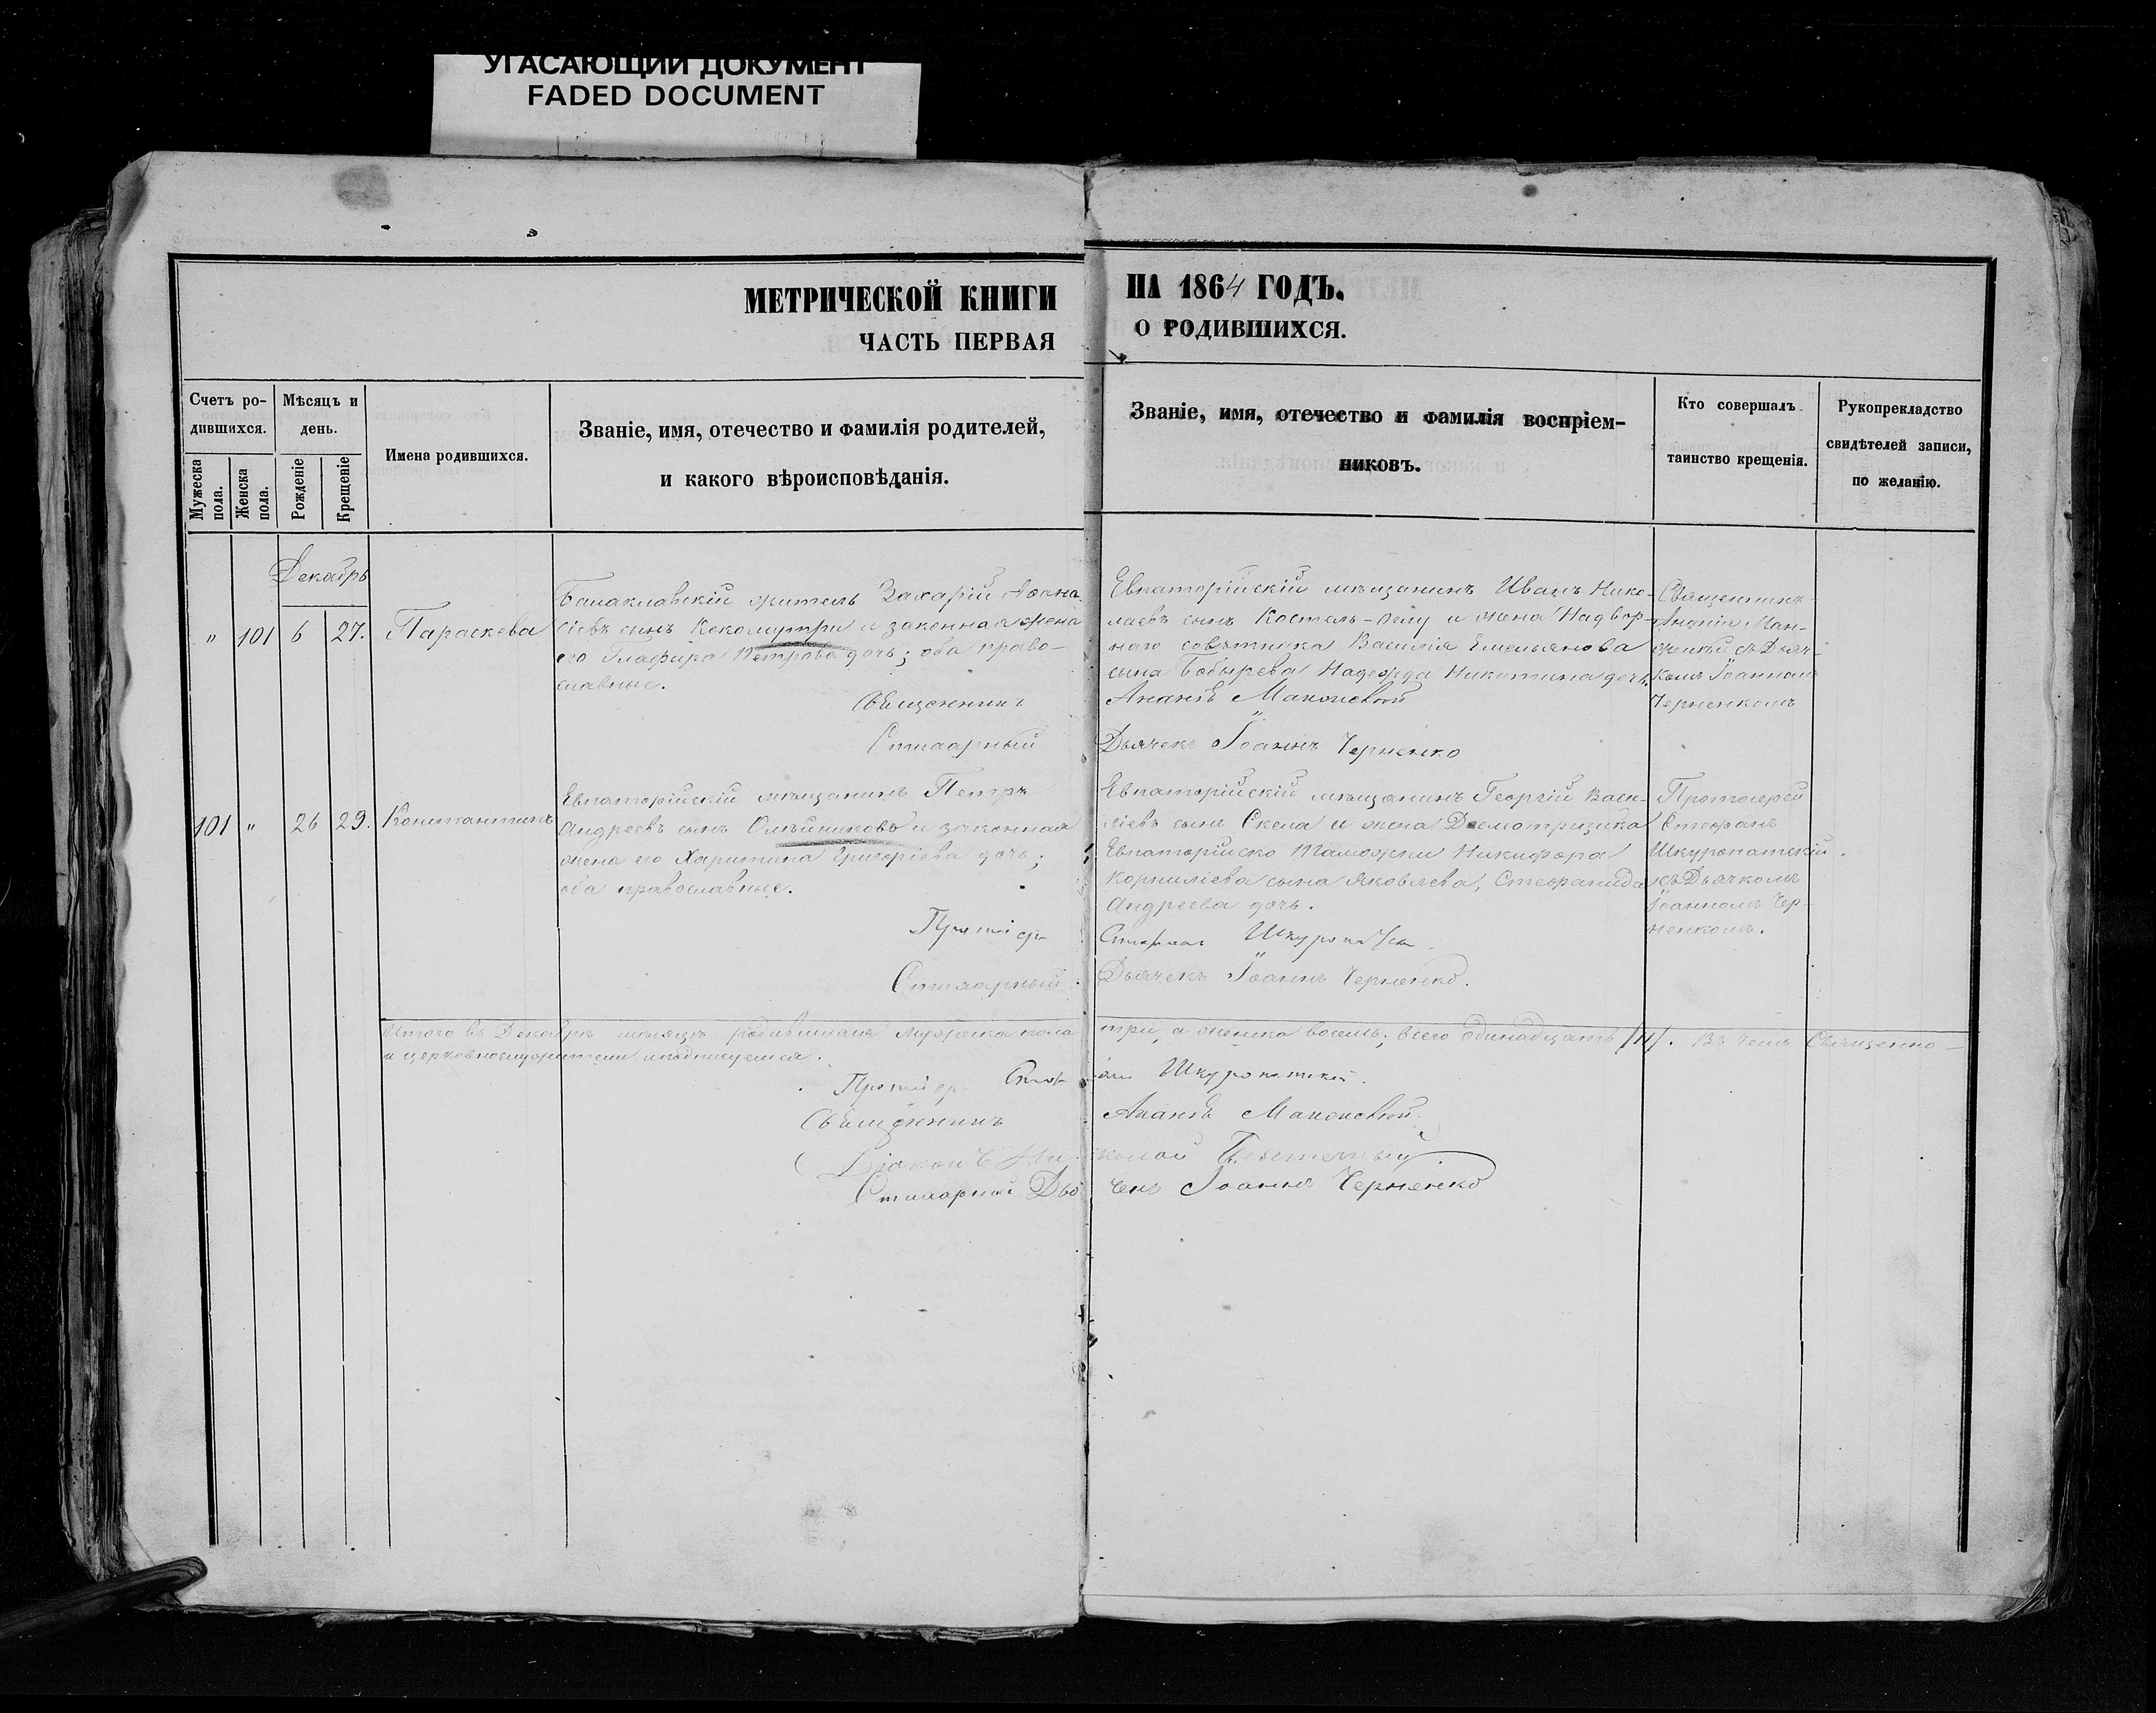 УГАСАЮЩИЙ ДОКУМЕНТ
FADED DOCUMENT
МЕТРИЧЕСКОЙ КНИГИ НА 1864 ГОДЪ.
ЧАСТЬ ПЕРВАЯ О РОДИВШИХСЯ.
Счетъ ро-
дившихся.
Мужеска пола.
Женска пола.
Мѣсяцъ и
день.
Рожденіе
Крещеніе
Имена родившихся.
Званіе, имя, отечество и фамилія родителей,
и какого вѣроисповѣданія.
Званіе, имя, отечество и фамилія воспріем-
никовъ.
Кто совершалъ
таинство крещенія.
Рукоприкладство
свидѣтелей записи,
по желанію.
Декабрь
" 101 6 27. Параскева
Балаклавскій житель Захарій Аѳана-
сіевъ сынъ Кокомутри и законная жена
его Глафира Петрова дочь; оба право-
славные.
Евпаторійскій мѣщанинъ Иванъ Нико-
лаевъ сынъ и жена Надвор-
наго совѣтника Василія Емельянова
сына Бобырева Надежда Никитина дочь.
Священникъ
съ Дьяч-
комъ Іоанномъ
Черненкомъ
Священникъ Ананій
Стихарный Дьячекъ Іоаннъ Черненко
101 " 26 29. Константинъ
Евпаторійскій мѣщанинъ Петръ
Андреевъ сынъ Олѣйниковъ и законная
жена его Харитина Григоріева дочь;
оба православные.
Евпаторійскій мѣщанинъ Георгій Васи-
ліевъ сынъ Скела и жена Досмотрщика
Евпаторійско Таможни Никифора
Корниліева сына Яковлева, Стефанида
Андреева дочь.
Протоіерей
Стефанъ
Шкуропатскій
съ Дьячкомъ
Іоанномъ Чер-
ненкомъ.
Протоіер Стефанъ
Стихарный Дьячекъ Іоаннъ Черненко.
Итого въ Декабрѣ мѣсяцѣ родившихся мужеска пола три, а женска восемь; всего одинадцать /11/. Въ чемъ Священно-
и церковнослужители и подписуемся.
Протоіер. Стефанъ Шкуропатскій.
Священникъ Ананій
Діаконъ Николай
Стихарный Дьячекъ Іоаннъ Черненко